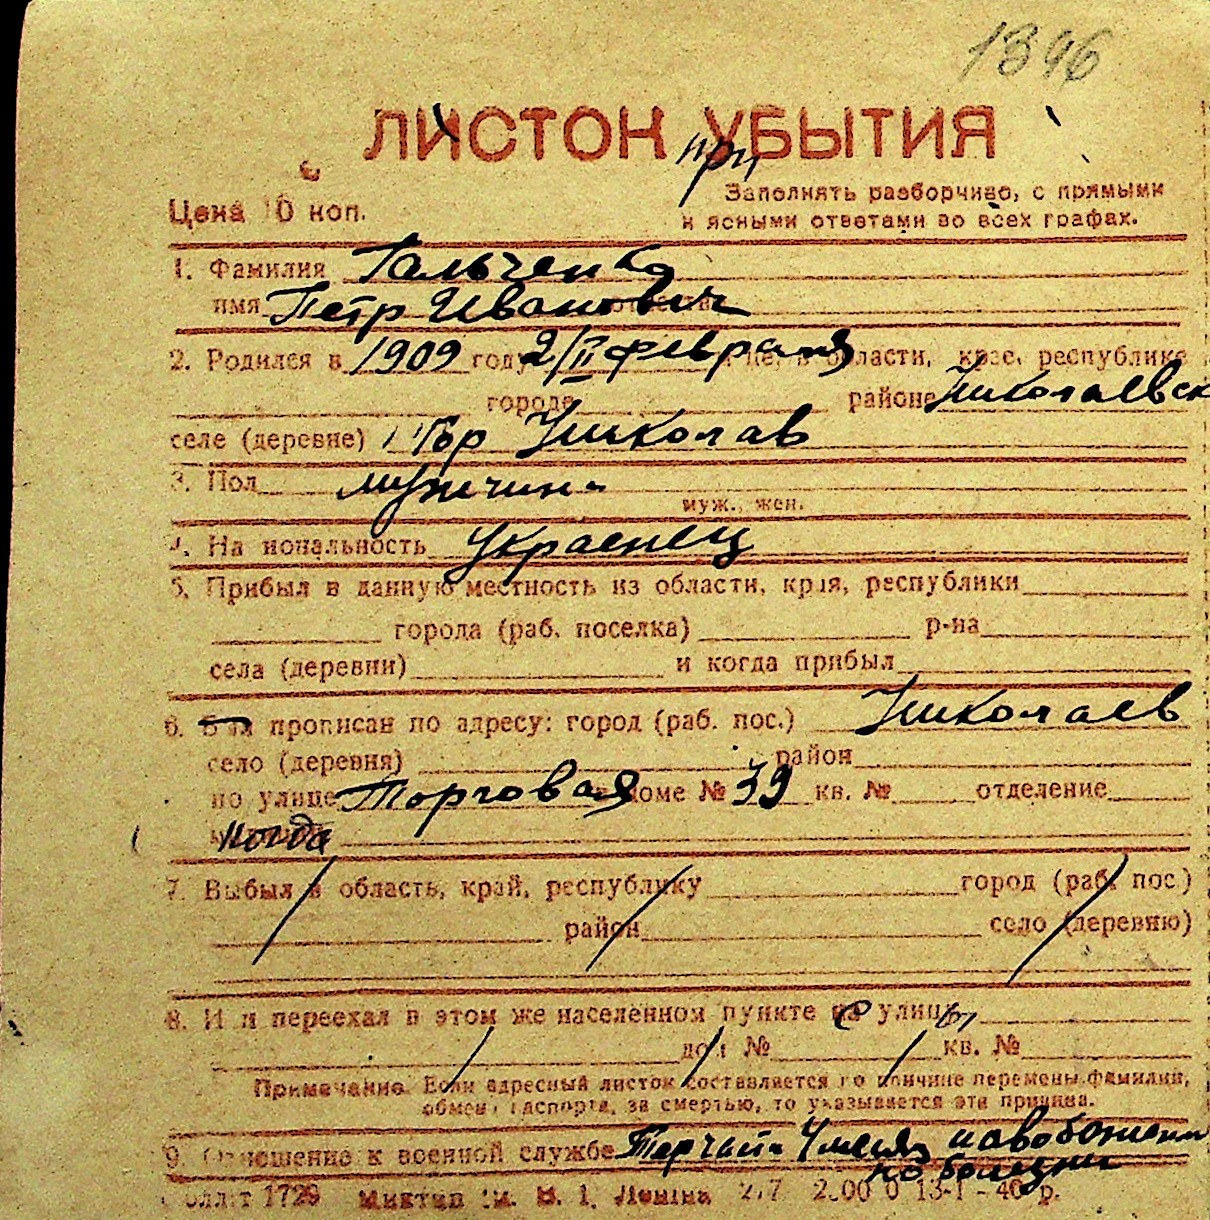 1396
ЛИСТОН УБЫТИЯ
при
Цена 10 коп.
Заполнять разборчиво, с прямыми
и ясными ответами во всех графах.
1. Фамилия Гальченко
имя Петр Иванович
2. Родился в 1909 году 2/II февраля области, крае, республике
городе районе Николаевск
селе (деревне) гор Николав
3. Пол мужчина
муж., жен.
4. Национальность Украенец
5. Прибыл в данную местность из области, края, республики
города (раб. поселка) р-на
села (деревни) и когда прибыл
6. Был прописан по адресу: город (раб. пос.) Николаев
село (деревня) район
по улице Торговая доме № 39 кв. № отделение
когда
7. Выбыл в область, край, республику город (раб. пос.)
район село (деревню)
8. Или переехал в этом же населенном пункте на улицу
дом № кв. №
Примечание. Если адресный листок составляется по причине перемены фамилии,
обмена паспорта, за смертью, то указывается эта причина.
9. Отношение к военной службе
по болезни
1729 Ленина 13-I - 40 р.